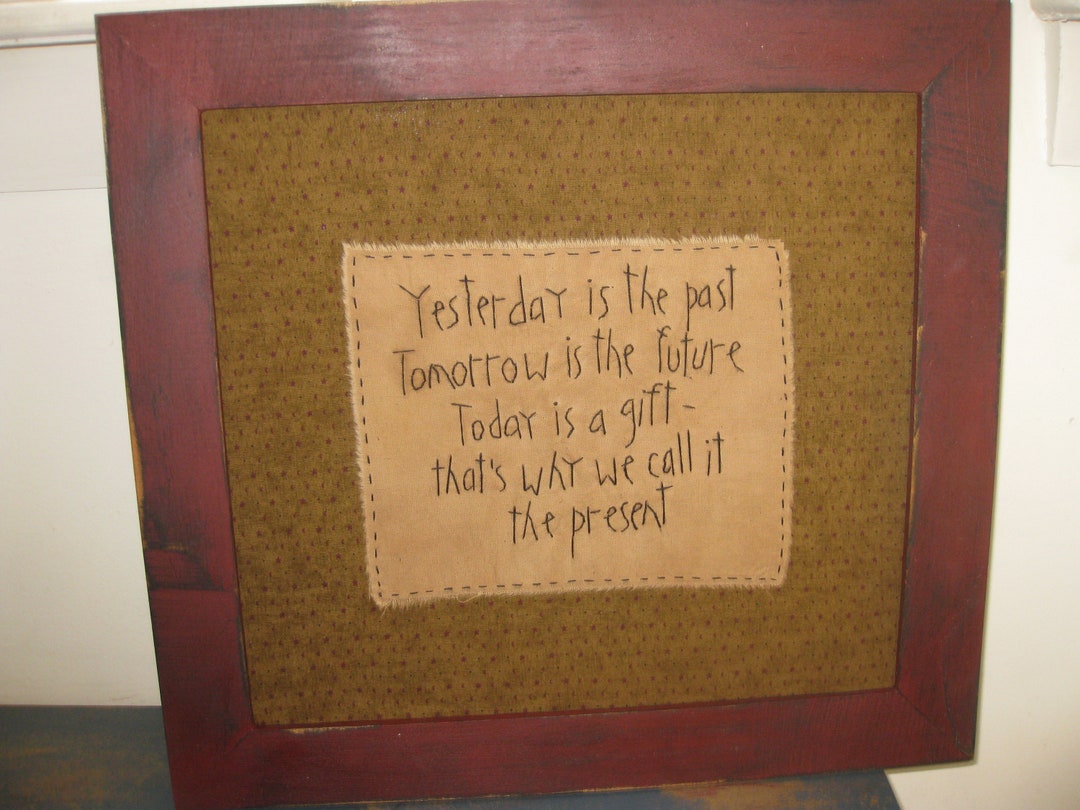 Yesterday is the past
Tomorrow is the future
Today is a gift -
that's why we call it
the present